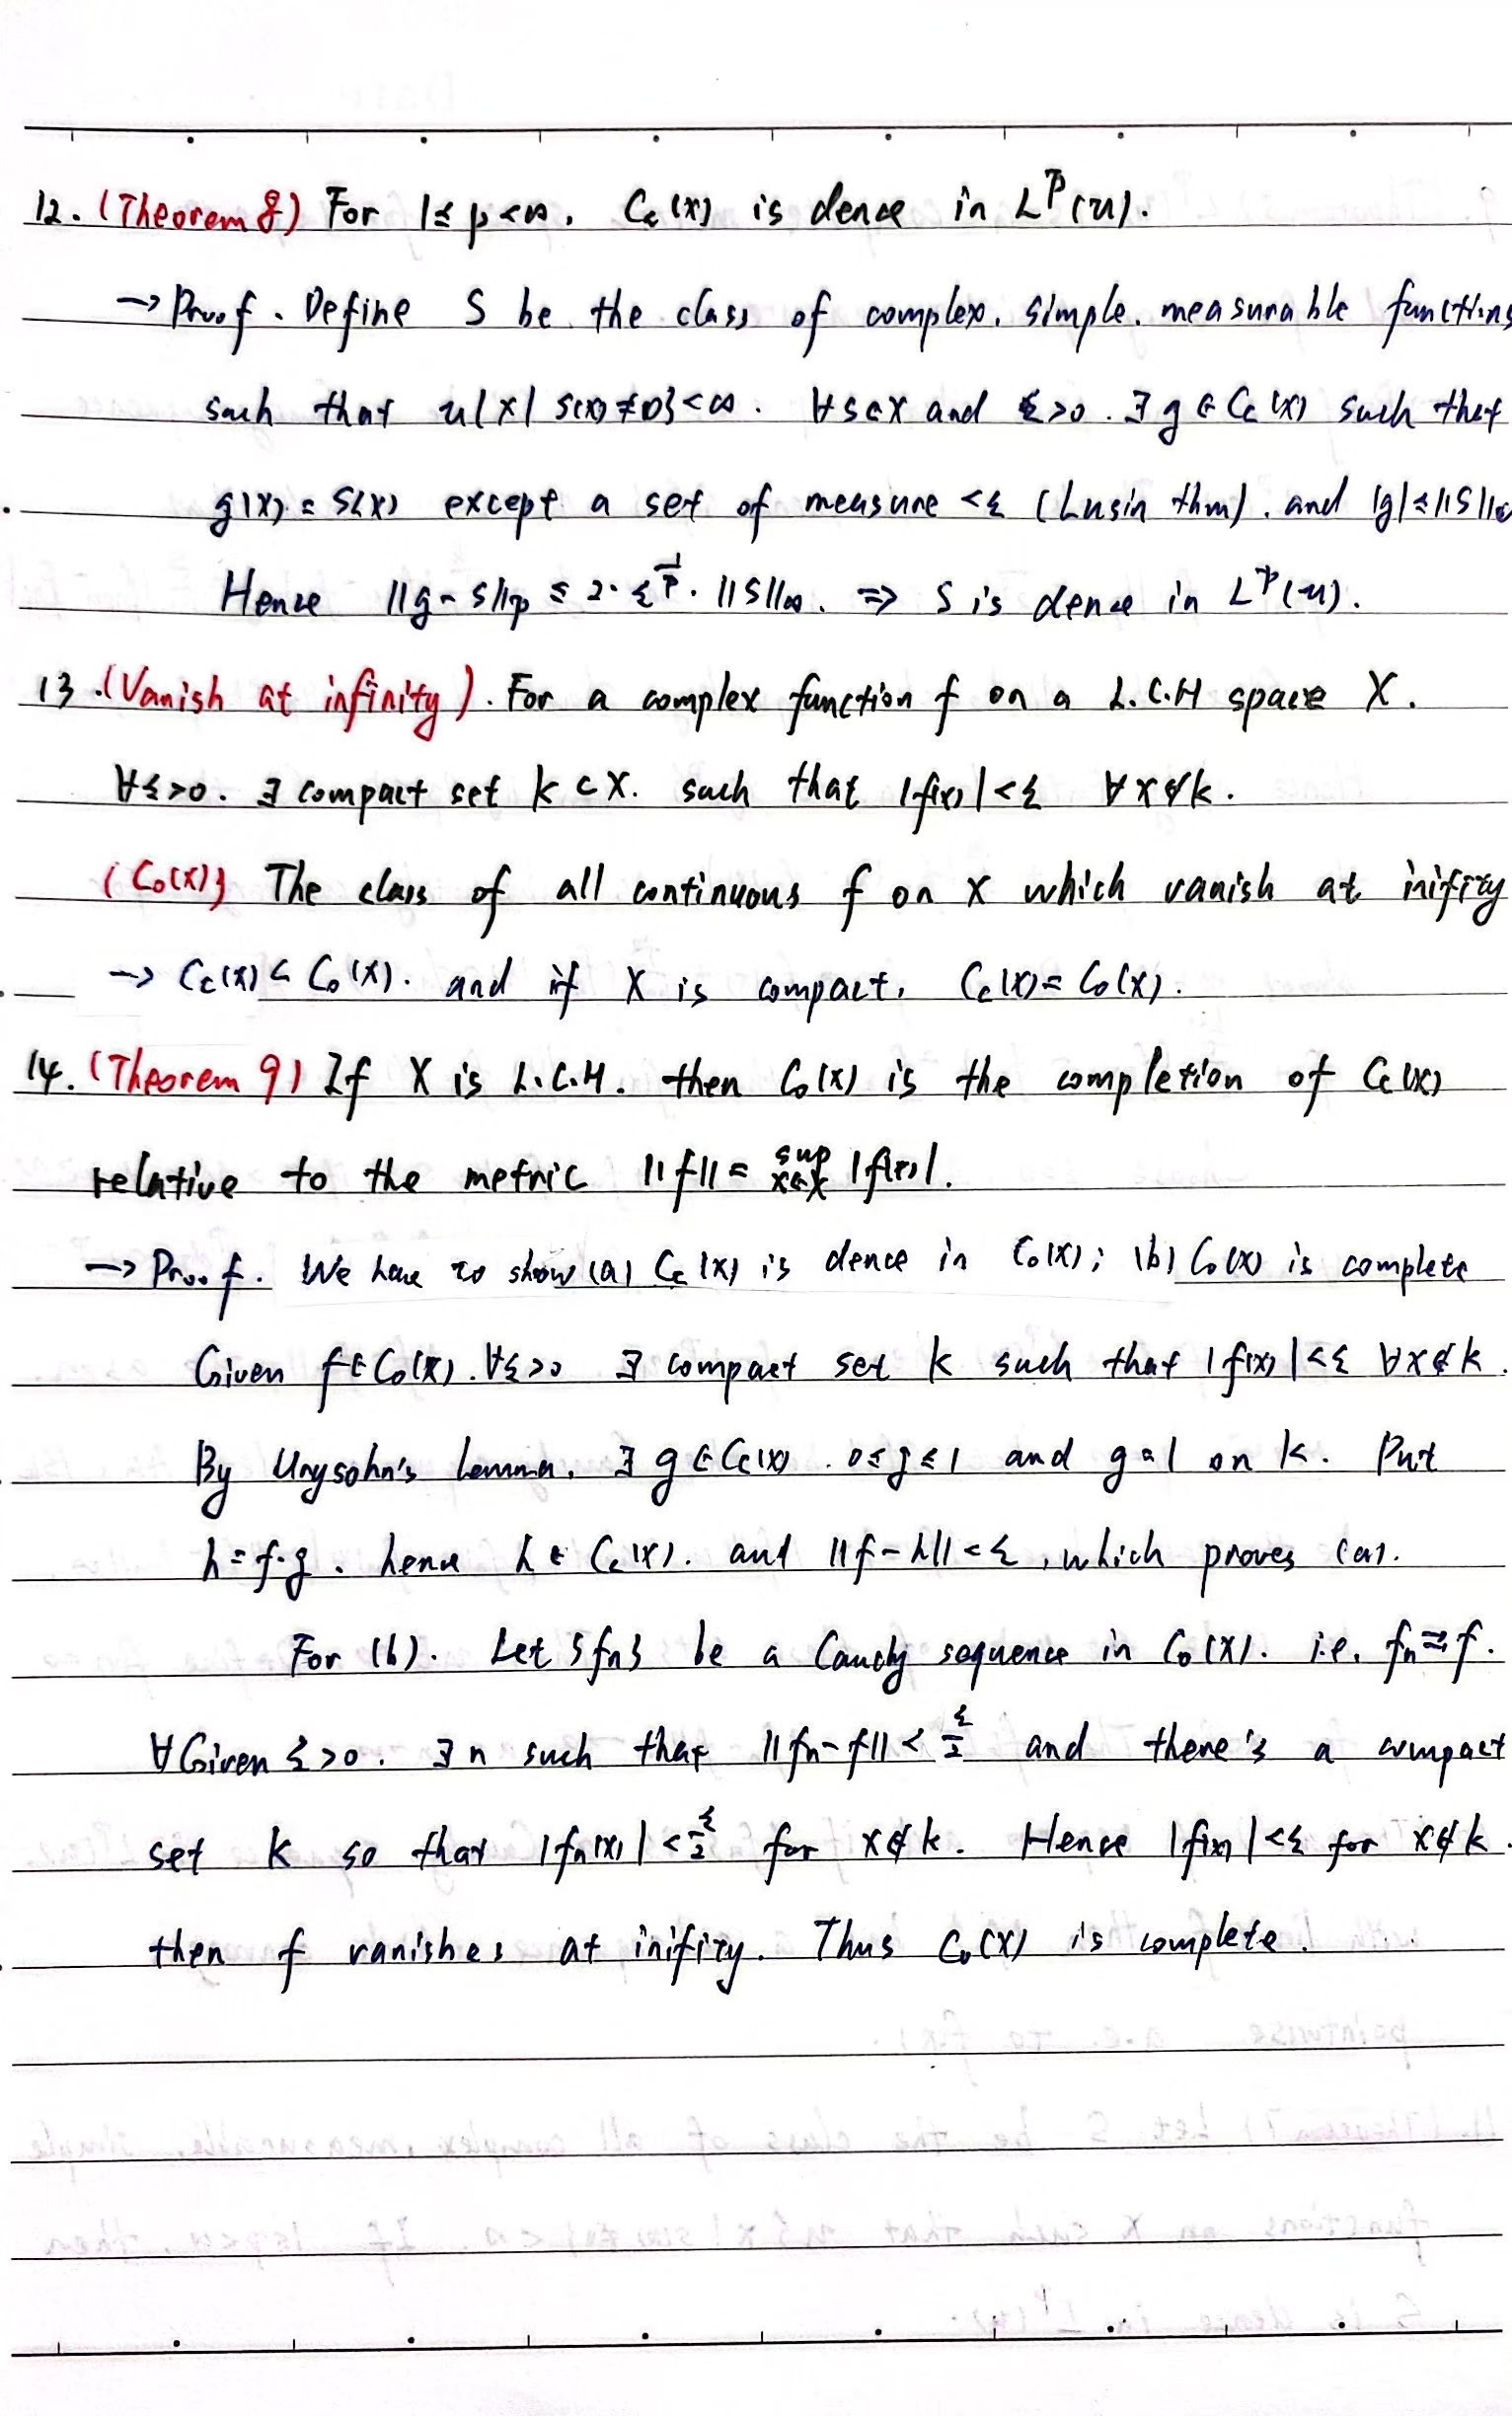 12. (Theorem 8) For 1≤p<∞. Cc(X) is dence in L^p(u).
→ Proof. Define S be the class of complex. simple. measurable functions
such that u{x| s(x)≠0}<∞. ∀s∈X and ε>0. ∃g∈Cc(X) such that
g(x)=s(x) except a set of measure <ε (Lusin thm). and |g|≤||s||∞
Hence ||g-s||p ≤ 2·ε^{1/p}·||s||∞. ⇒ S is dence in L^p(u).
13.(Vanish at infinity). For a complex function f on a L.C.H space X.
∀ε>0. ∃ compact set K⊂X. such that |f(x)|<ε ∀x∉K.
(C₀(X)) The class of all continuous f on X which vanish at inifity
→ Cc(X)⊂C₀(X). and if X is compact, Cc(X)=C₀(X).
14.(Theorem 9) If X is L.C.H. then C₀(X) is the completion of Cc(X)
relative to the metric ||f||= sup x∈X |f(x)|.
→ Proof. We have to show (a) Cc(X) is dence in C₀(X); (b) C₀(X) is complete
Given f∈C₀(X). ∀ε>0 ∃ compact set K such that |f(x)|<ε ∀x∉K.
By Urysohn's Lemma. ∃g∈Cc(X). 0≤g≤1 and g=1 on K. Put
h=f·g. hence h∈Cc(X). and ||f-h||<ε, which proves (a).
For (b). Let {fn} be a Cauchy sequence in C₀(X). i.e. fn⇉f.
∀Given ε>0. ∃n such that ||fn-f||<ε/2 and there's a compact
set K so that |fn(x)|<ε/2 for x∉K. Hence |f(x)|<ε for x∉K.
then f vanishes at inifity. Thus C₀(X) is complete.